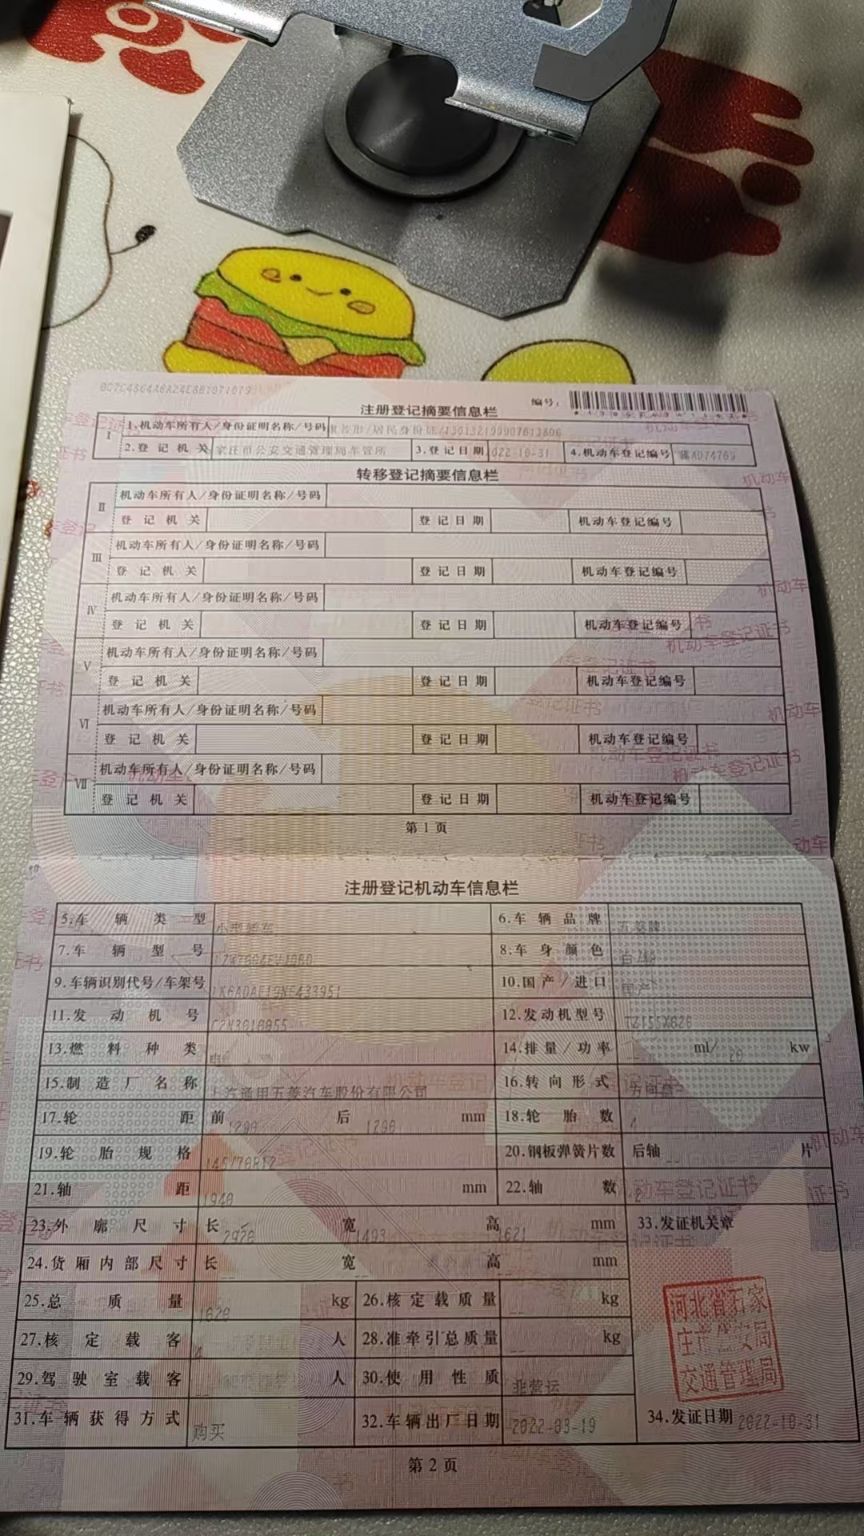 注册登记摘要信息栏
编号:
Ⅰ 1.机动车所有人/身份证明名称/号码 /居民身份证/
2.登记机关 家庄市公安交通管理局车管所 3.登记日期 022-10-31 4.机动车登记编号 冀AD74769
转移登记摘要信息栏
Ⅱ 机动车所有人/身份证明名称/号码
登记机关 登记日期 机动车登记编号
Ⅲ 机动车所有人/身份证明名称/号码
登记机关 登记日期 机动车登记编号
Ⅳ 机动车所有人/身份证明名称/号码
登记机关 登记日期 机动车登记编号
Ⅴ 机动车所有人/身份证明名称/号码
登记机关 登记日期 机动车登记编号
Ⅵ 机动车所有人/身份证明名称/号码
登记机关 登记日期 机动车登记编号
Ⅶ 机动车所有人/身份证明名称/号码
登记机关 登记日期 机动车登记编号
第1页
注册登记机动车信息栏
5.车辆类型 小型轿车 6.车辆品牌 五菱牌
7.车辆型号 8.车身颜色
9.车辆识别代号/车架号 10.国产/进口 国产
11.发动机号 12.发动机型号 TZ155X020
13.燃料种类 电 14.排量/功率 -- ml/ 20 kw
15.制造厂名称 上汽通用五菱汽车股份有限公司 16.转向形式 方向盘
17.轮距 前 1290 后 1290 mm 18.轮胎数 4
19.轮胎规格 145/70R12 20.钢板弹簧片数 后轴 -- 片
21.轴距 1940 mm 22.轴数 2
23.外廓尺寸 长 2920 宽 1493 高 1621 mm 33.发证机关章
24.货厢内部尺寸 长 -- 宽 -- 高 -- mm
25.总质量 kg 26.核定载质量 -- kg
河北省石家
庄市公安局
交通管理局
27.核定载客 4 人 28.准牵引总质量 -- kg
29.驾驶室载客 -- 人 30.使用性质 非营运
31.车辆获得方式 购买 32.车辆出厂日期 2022-03-19 34.发证日期 2022-10-31
第2页